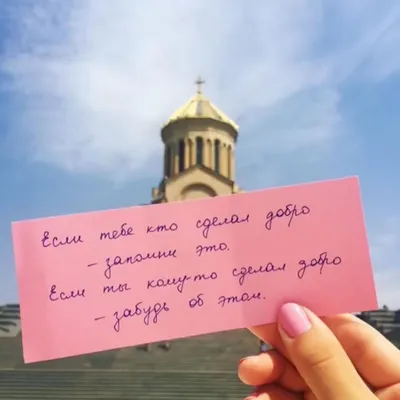 Если тебе кто сделал добро
– запомни это.
Если ты кому-то сделал добро
– забудь об этом.